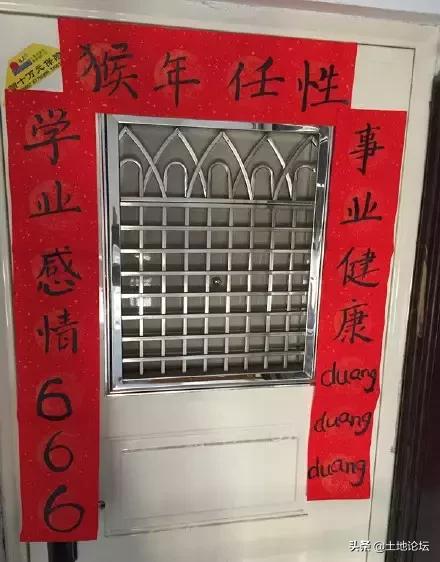 猴年任性
学业感情666
事业健康duang duang duang
头条 @土地论坛